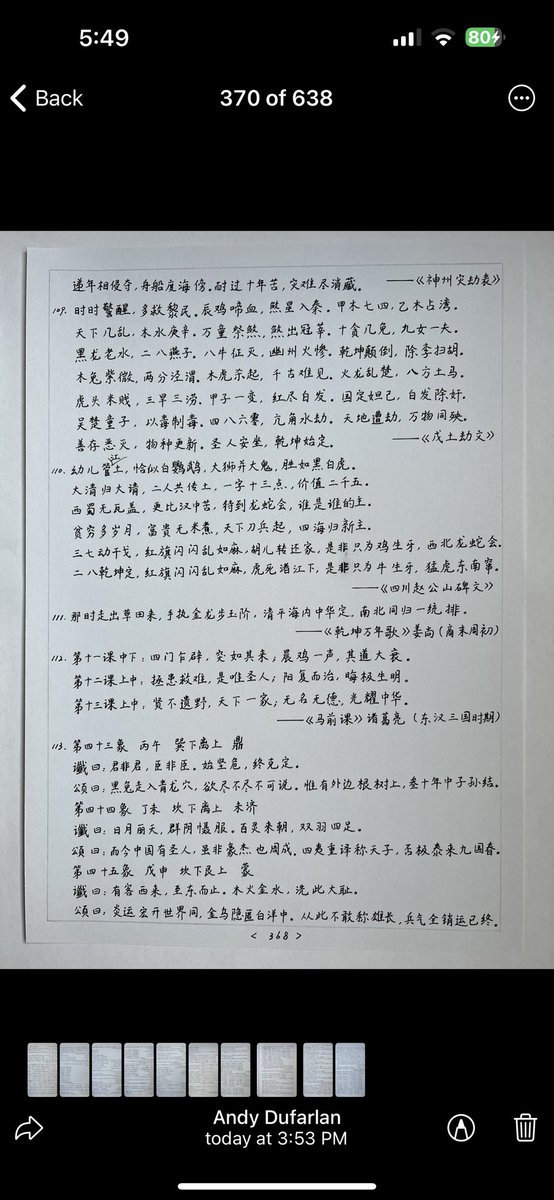 5:49
80
Back
370 of 638
递年相侵夺,舟船度海傍。耐过十年苦,灾难尽消藏。 ——《神州灾劫表》
109. 时时警醒,多救黎民。辰鸡啼血,煞星入秦。甲木七四,乙木占湾。
天下几乱,木水庚辛。万童祭煞,煞出冠革。十贪几兔,九女一夫。
黑龙老水,二八燕子。八牛征灭,幽州火惨。乾坤颠倒,除李扫胡。
木兔紫微,两分泾渭。木虎东起,千古难见。火龙乱楚,八方土马。
虎头米贱,三旱三涝。甲子一变,红尽白发。国定妲己,白发除奸。
吴楚童子,以毒制毒。四八六零,亢角水劫。天地遭劫,万物同殃。
善存恶灭,物种更新。圣人安坐,乾坤始定。 ——《戊土劫文》
110. 幼儿管土,恰似白鹦鹉,大狮并大鬼,胜如黑白虎。
大清归大请,二人共传土,一字十三点,价值二千五。
西蜀无瓦盖,更比汉中苦,待到龙蛇会,谁是谁的主。
贫穷多岁月,富贵无米煮,天下刀兵起,四海归新主。
三七动干戈,红旗闪闪乱如麻,胡儿转还家,是非只为鸡生牙,西北龙蛇会。
二八乾坤定,红旗闪闪乱如麻,虎死浯江下,是非只为牛生牙,猛虎东南窜。
——《四川赵公山碑文》
111. 那时走出草田来,手执金龙步玉阶,清平海内中华定,南北同归一统排。
——《乾坤万年歌》姜尚(商末周初)
112. 第十一课中下:四门乍辟,突如其来;晨鸡一声,其道大衰。
第十二课上中:拯患救难,是唯圣人;阳复而治,晦极生明。
第十三课上中:贤不遗野,天下一家;无名无德,光耀中华。
——《马前课》诸葛亮(东汉三国时期)
113. 第四十三象 丙午 巽下离上 鼎
谶曰:君非君,臣非臣。始坚危,终克定。
颂曰:黑兔走入青龙穴,欲尽不尽不可说。惟有外边根树上,叁十年中子孙结。
第四十四象 丁未 坎下离上 未济
谶曰:日月丽天,群阴慑服。百灵来朝,双羽四足。
颂曰:而今中国有圣人,虽非豪杰也周成。四夷重译称天子,否极泰来九国春。
第四十五象 戊申 坎下艮上 蒙
谶曰:有客西来,至东而止。木火金水,洗此大耻。
颂曰:炎运宏开世界同,金乌隐匿白洋中。从此不敢称雄长,兵气全销运已终。
< 368 >
Andy Dufarlan
today at 3:53 PM